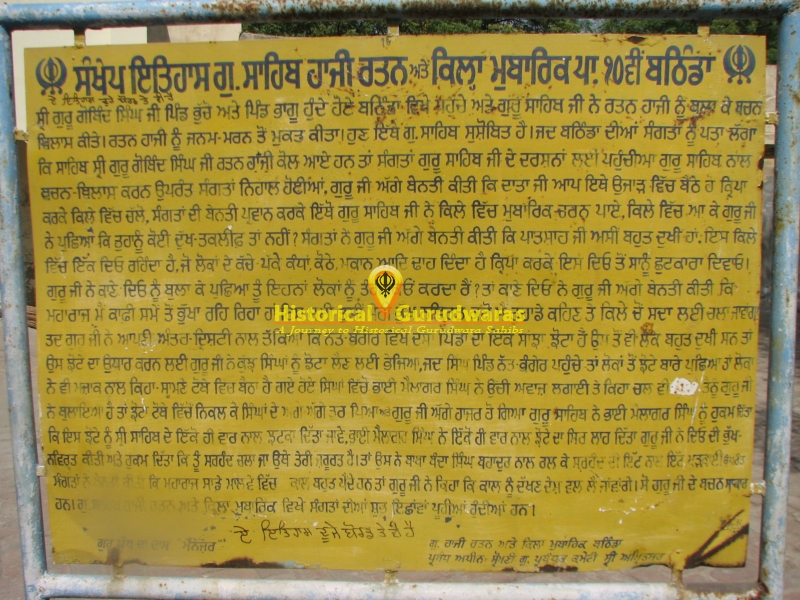 ਸੰਖੇਪ ਇਤਿਹਾਸ ਗੁ. ਸਾਹਿਬ ਹਾਜੀ ਰਤਨ ਅਤੇ ਕਿਲ੍ਹਾ ਮੁਬਾਰਿਕ ਪਾ. ੧੦ਵੀਂ ਬਠਿੰਡਾ
ਸ੍ਰੀ ਗੁਰੂ ਗੋਬਿੰਦ ਸਿੰਘ ਜੀ ਪਿੰਡ ਭੁੱਚੋ ਅਤੇ ਪਿੰਡ ਭਾਗੂ ਹੁੰਦੇ ਹੋਏ ਬਠਿੰਡਾ ਵਿਖੇ ਪਹੁੰਚੇ ਅਤੇ ਗੁਰੂ ਸਾਹਿਬ ਜੀ ਨੇ ਰਤਨ ਹਾਜੀ ਨੂੰ ਬੁਲਾ ਕੇ ਬਚਨ
ਬਿਲਾਸ ਕੀਤੇ। ਰਤਨ ਹਾਜੀ ਨੂੰ ਜਨਮ-ਮਰਨ ਤੋਂ ਮੁਕਤ ਕੀਤਾ। ਹੁਣ ਇਥੇ ਗੁ. ਸਾਹਿਬ ਸੁਸ਼ੋਬਿਤ ਹੈ। ਜਦ ਬਠਿੰਡਾ ਦੀਆਂ ਸੰਗਤਾਂ ਨੂੰ ਪਤਾ ਲੱਗਾ
ਕਿ ਸਾਹਿਬ ਸ੍ਰੀ ਗੁਰੂ ਗੋਬਿੰਦ ਸਿੰਘ ਜੀ ਰਤਨ ਹਾਜੀ ਕੋਲ ਆਏ ਹਨ ਤਾਂ ਸੰਗਤਾਂ ਗੁਰੂ ਸਾਹਿਬ ਜੀ ਦੇ ਦਰਸ਼ਨਾਂ ਲਈ ਪਹੁੰਚੀਆ ਗੁਰੂ ਸਾਹਿਬ ਨਾਲ
ਬਚਨ-ਬਿਲਾਸ ਕਰਨ ਉਪਰੰਤ ਸੰਗਤਾਂ ਨਿਹਾਲ ਹੋਈਆਂ, ਗੁਰੂ ਜੀ ਅੱਗੇ ਬੇਨਤੀ ਕੀਤੀ ਕਿ ਦਾਤਾ ਜੀ ਆਪ ਇਥੇ ਉਜਾੜ ਵਿੱਚ ਬੈਠੇ ਹੋ ਕ੍ਰਿਪਾ
ਕਰਕੇ ਕਿਲੇ ਵਿੱਚ ਚੱਲੋ, ਸੰਗਤਾਂ ਦੀ ਬੇਨਤੀ ਪ੍ਰਵਾਨ ਕਰਕੇ ਇੱਥੋਂ ਗੁਰੂ ਸਾਹਿਬ ਜੀ ਨੇ ਕਿਲੇ ਵਿੱਚ ਮੁਬਾਰਿਕ-ਚਰਨ ਪਾਏ, ਕਿਲੇ ਵਿੱਚ ਆ ਕੇ ਗੁਰੂ ਜੀ
ਨੇ ਪੁਛਿਆ ਕਿ ਤੁਹਾਨੂੰ ਕੋਈ ਦੁੱਖ-ਤਕਲੀਫ਼ ਤਾਂ ਨਹੀਂ? ਸੰਗਤਾਂ ਨੇ ਗੁਰੂ ਜੀ ਅੱਗੇ ਬੇਨਤੀ ਕੀਤੀ ਕਿ ਪਾਤਸ਼ਾਹ ਜੀ ਅਸੀਂ ਬਹੁਤ ਦੁਖੀ ਹਾਂ. ਇਸ ਕਿਲੇ
ਵਿੱਚ ਇੱਕ ਦਿਓ ਰਹਿੰਦਾ ਹੈ, ਜੋ ਲੋਕਾਂ ਦੇ ਕੱਚੇ ਪੱਕੇ ਕੰਧਾਂ, ਕੋਠੇ, ਮਕਾਨ ਆਦਿ ਢਾਹ ਦਿੰਦਾ ਹੈ ਕ੍ਰਿਪਾ ਕਰਕੇ ਇਸ ਦਿਓ ਤੋਂ ਸਾਨੂੰ ਛੁਟਕਾਰਾ ਦਿਵਾਓ।
ਗੁਰੂ ਜੀ ਨੇ ਕਾਣੇ ਦਿਓ ਨੂੰ ਬੁਲਾ ਕੇ ਪੁਛਿਆ ਤੂੰ ਇਹਨਾਂ ਲੋਕਾਂ ਨੂੰ ਕਰਦਾ ਹੈਂ? ਤਾਂ ਕਾਣੇ ਦਿਓ ਨੇ ਗੁਰੂ ਜੀ ਅੱਗੇ ਬੇਨਤੀ ਕੀਤੀ ਕਿ
ਮਹਾਰਾਜ ਮੈਂ ਕਾਫੀ ਸਮੇਂ ਤੋਂ ਭੁੱਖਾ ਰਹਿ ਰਿਹਾ ਕਹਿਣ ਤੇ ਕਿਲੇ ਚੋਂ ਸਦਾ ਲਈ ਚਲਾ ਜਾਵਾਂਗਾ
Historical Gurudwaras
A Journey to Historical Gurudwara Sahibs
ਤਦ ਗੁਰੂ ਜੀ ਨੇ ਆਪਣੀ ਅੰਤਰ-ਦ੍ਰਿਸ਼ਟੀ ਨਾਲ ਤੱਕਿਆ ਕਿ ਨੱਤ-ਬੰਗੇਰ ਵਿਖੇ ਪਿੰਡਾਂ ਦਾ ਇੱਕ ਸਾਂਝਾ ਝੋਟਾ ਹੈ ਉਸ ਤੋਂ ਵੀ ਲੋਕ ਬਹੁਤ ਦੁਖੀ ਸਨ ਤਾਂ
ਉਸ ਝੋਟੇ ਦਾ ਉਧਾਰ ਕਰਨ ਲਈ ਗੁਰੂ ਜੀ ਨੇ ਕੁਝ ਸਿੰਘਾਂ ਨੂੰ ਝੋਟਾ ਲੈਣ ਲਈ ਭੇਜਿਆ, ਜਦ ਸਿੰਘ ਪਿੰਡ ਨੱਤ-ਬੰਗੇਰ ਪਹੁੰਚੇ ਤਾਂ ਲੋਕਾਂ ਤੋਂ ਝੋਟੇ ਬਾਰੇ ਪੁਛਿਆ ਤਾਂ ਲੋਕਾਂ
ਨੇ ਵੀ ਮਜ਼ਾਕ ਨਾਲ ਕਿਹਾ-ਸਾਮਣੇ ਟੋਬੇ ਵਿੱਚ ਬੈਠਾ ਹੈ ਗਏ ਹੋਏ ਸਿੰਘਾਂ ਵਿੱਚੋਂ ਭਾਈ ਮੇਲਾਗਰ ਸਿੰਘ ਨੇ ਉੱਚੀ ਅਵਾਜ਼ ਲਗਾਈ ਤੇ ਕਿਹਾ ਚਲ ਗੁਰੂ ਜੀ
ਨੇ ਬੁਲਾਇਆ ਹੈ ਤਾਂ ਝੋਟਾ ਟੋਬੇ ਵਿੱਚੋਂ ਨਿਕਲ ਕੇ ਸਿੰਘਾਂ ਦੇ ਅੱਗੇ ਅੱਗੇ ਤੁਰ ਪਿਆ ਅਤੇ ਗੁਰੂ ਜੀ ਅੱਗੇ ਹਾਜ਼ਰ ਹੋ ਗਿਆ ਗੁਰੂ ਸਾਹਿਬ ਨੇ ਭਾਈ ਮੇਲਾਗਰ ਸਿੰਘ ਨੂੰ ਹੁਕਮ ਦਿੱਤਾ
ਕਿ ਇਸ ਝੋਟੇ ਨੂੰ ਸ੍ਰੀ ਸਾਹਿਬ ਦੇ ਇੱਕੋ ਹੀ ਵਾਰ ਨਾਲ ਝਟਕਾ ਦਿੱਤਾ ਜਾਵੇ, ਭਾਈ ਮੇਲਾਗਰ ਸਿੰਘ ਨੇ ਇੱਕੋ ਹੀ ਵਾਰ ਨਾਲ ਝੋਟੇ ਦਾ ਸਿਰ ਲਾਹ ਦਿੱਤਾ ਗੁਰੂ ਜੀ ਨੇ ਦਿਓ ਦੀ ਭੁੱਖ-
ਨਵਿਰਤ ਕੀਤੀ ਅਤੇ ਹੁਕਮ ਦਿੱਤਾ ਕਿ ਤੂੰ ਸਰਹੰਦ ਚਲਾ ਜਾ ਉੱਥੇ ਤੇਰੀ ਜ਼ਰੂਰਤ ਹੈ। ਤਾਂ ਉਸ ਨੇ ਬਾਬਾ ਬੰਦਾ ਸਿੰਘ ਬਹਾਦੁਰ ਨਾਲ ਰਲ ਕੇ ਸਰਹੰਦ ਦੀ ਇੱਟ ਨਾਲ ਇੱਟ
ਸੰਗਤਾਂ ਨੇ ਬੇਨਤੀ ਕੀਤੀ ਕਿ ਮਹਾਰਾਜ ਸਾਡੇ ਮਾਲਵੇ ਵਿੱਚ ਕਾਲ ਬਹੁਤ ਪੈਂਦੇ ਹਨ ਤਾਂ ਗੁਰੂ ਜੀ ਨੇ ਕਿਹਾ ਕਿ ਕਾਲ ਨੂੰ ਦੱਖਣ ਦੇਸ਼ ਵਲ ਲੈ ਜਾਵਾਂਗੇ। ਸੋ ਗੁਰੂ ਜੀ ਦੇ ਬਚਨ
ਹਨ। ਗੁ. ਹਾਜੀ ਰਤਨ ਅਤੇ ਕਿਲਾ ਮੁਬਾਰਿਕ ਵਿਖੇ ਸੰਗਤਾਂ ਦੀਆਂ ਸ਼ੁਭ ਇਛਾਵਾਂ ਪੂਰੀਆਂ ਹੁੰਦੀਆਂ ਹਨ।
ਇਤਿਹਾਸ ਦੂਜੇ ਬੋਰਡ ਤੇ ਵੀ ਹੈ
ਮੈਨੇਜਰ
ਗੁ. ਹਾਜੀ ਰਤਨ ਅਤੇ ਕਿਲਾ ਮੁਬਾਰਿਕ ਬਠਿੰਡਾ
ਪ੍ਰਬੰਧ ਅਧੀਨ: ਸ਼੍ਰੋਮਣੀ ਗੁ. ਪ੍ਰਬੰਧਕ ਕਮੇਟੀ ਸ੍ਰੀ ਅੰਮ੍ਰਿਤਸਰ